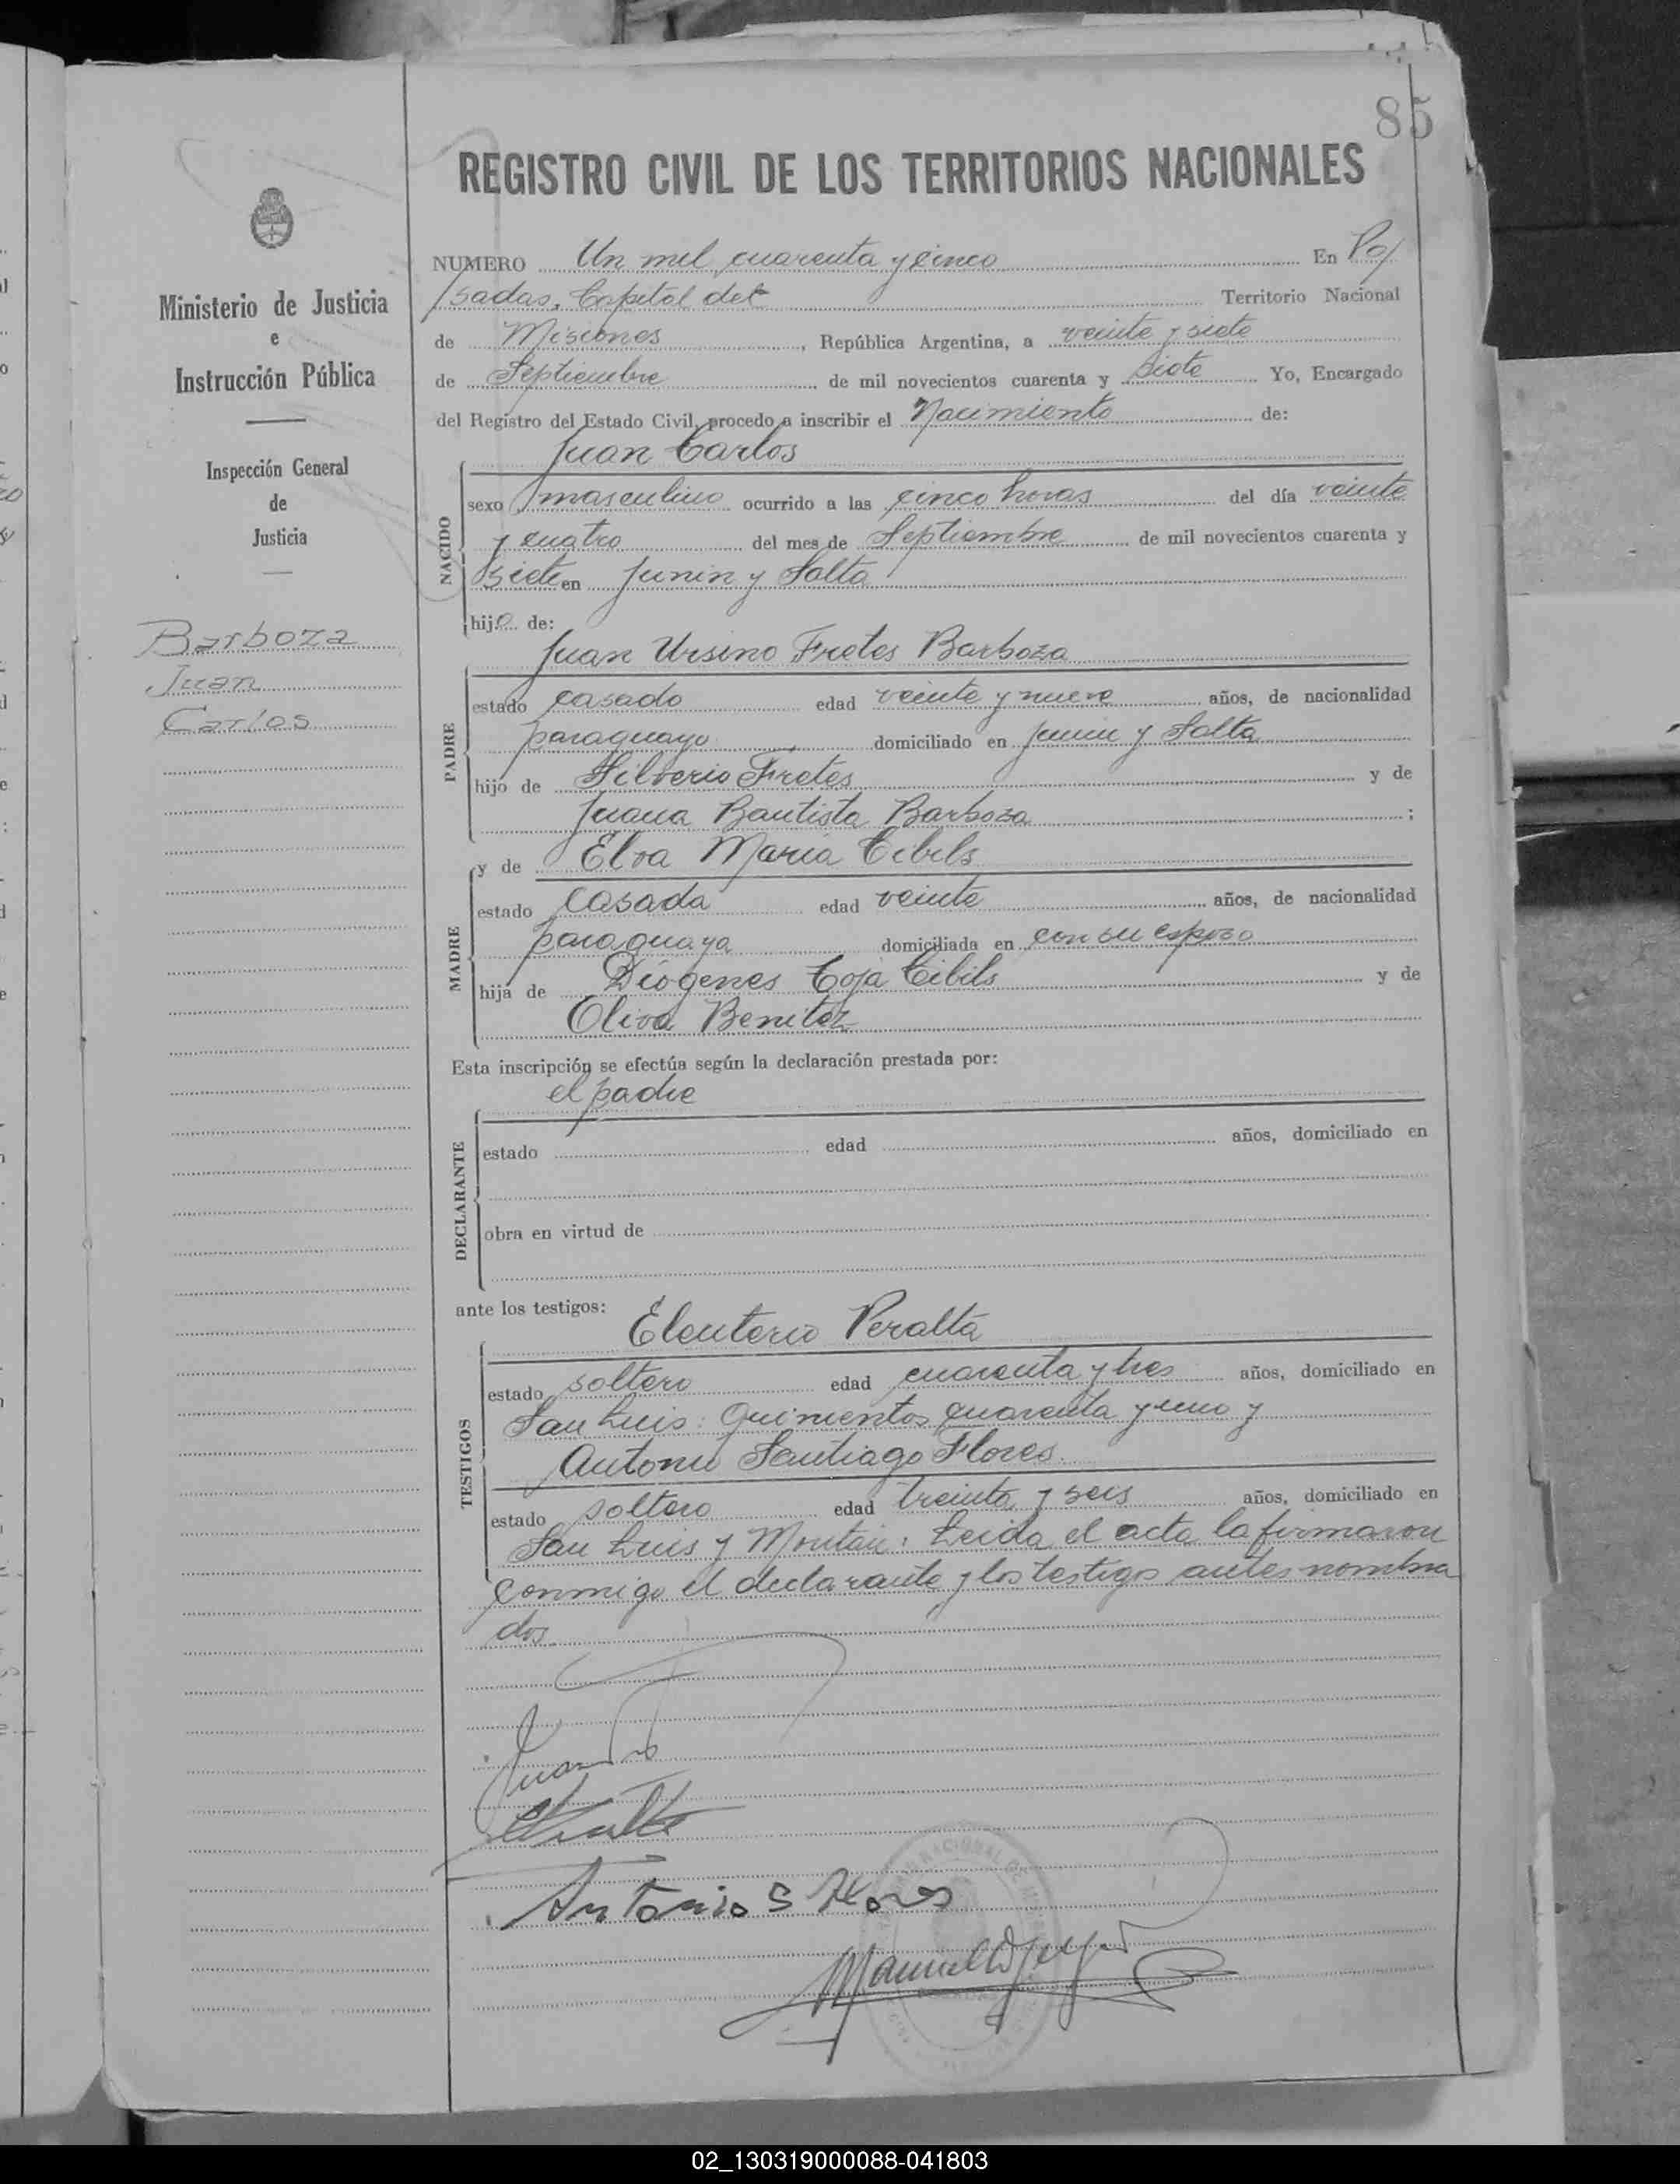 85
REGISTRO CIVIL DE LOS TERRITORIOS NACIONALES
Ministerio de Justicia
e
Instrucción Pública
Inspección General
de
Justicia
Barboza
Juan
Carlos
NUMERO Un mil cuarenta y cinco En Po/
/sadas, Capital del Territorio Nacional
de Misiones, República Argentina, a veinte y siete
de Septiembre de mil novecientos cuarenta y siete Yo, Encargado
del Registro del Estado Civil, procedo a inscribir el Nacimiento de:
Juan Carlos
NACIDO
sexo masculino ocurrido a las cinco horas del día veinte
y cuatro del mes de Septiembre de mil novecientos cuarenta y
siete en Junin y Salta
hijo de:
Juan Ursino Fretes Barboza
PADRE
estado casado edad veinte y nueve años, de nacionalidad
paraguayo domiciliado en Junin y Salta
hijo de Silverio Fretes y de
Juana Bautista Barboza ;
y de Elva Maria Cibils
MADRE
estado casada edad veinte años, de nacionalidad
paraguaya domiciliada en con su esposo
hija de Diógenes Coja Cibils y de
Oliva Benitez
Esta inscripción se efectúa según la declaración prestada por:
el padre
DECLARANTE
estado edad años, domiciliado en
obra en virtud de
ante los testigos:
Eleuterio Peralta
TESTIGOS
estado soltero edad cuarenta y tres años, domiciliado en
San Luis: Quinientos cuarenta y uno y
Antonio Santiago Flores
estado soltero edad treinta y seis años, domiciliado en
San Luis y : Leida el acta la firmaron
conmigo el declarante y los testigos antes nombra
dos.
Juan
Antonio S Flores
Manuel
02_130319000088-041803